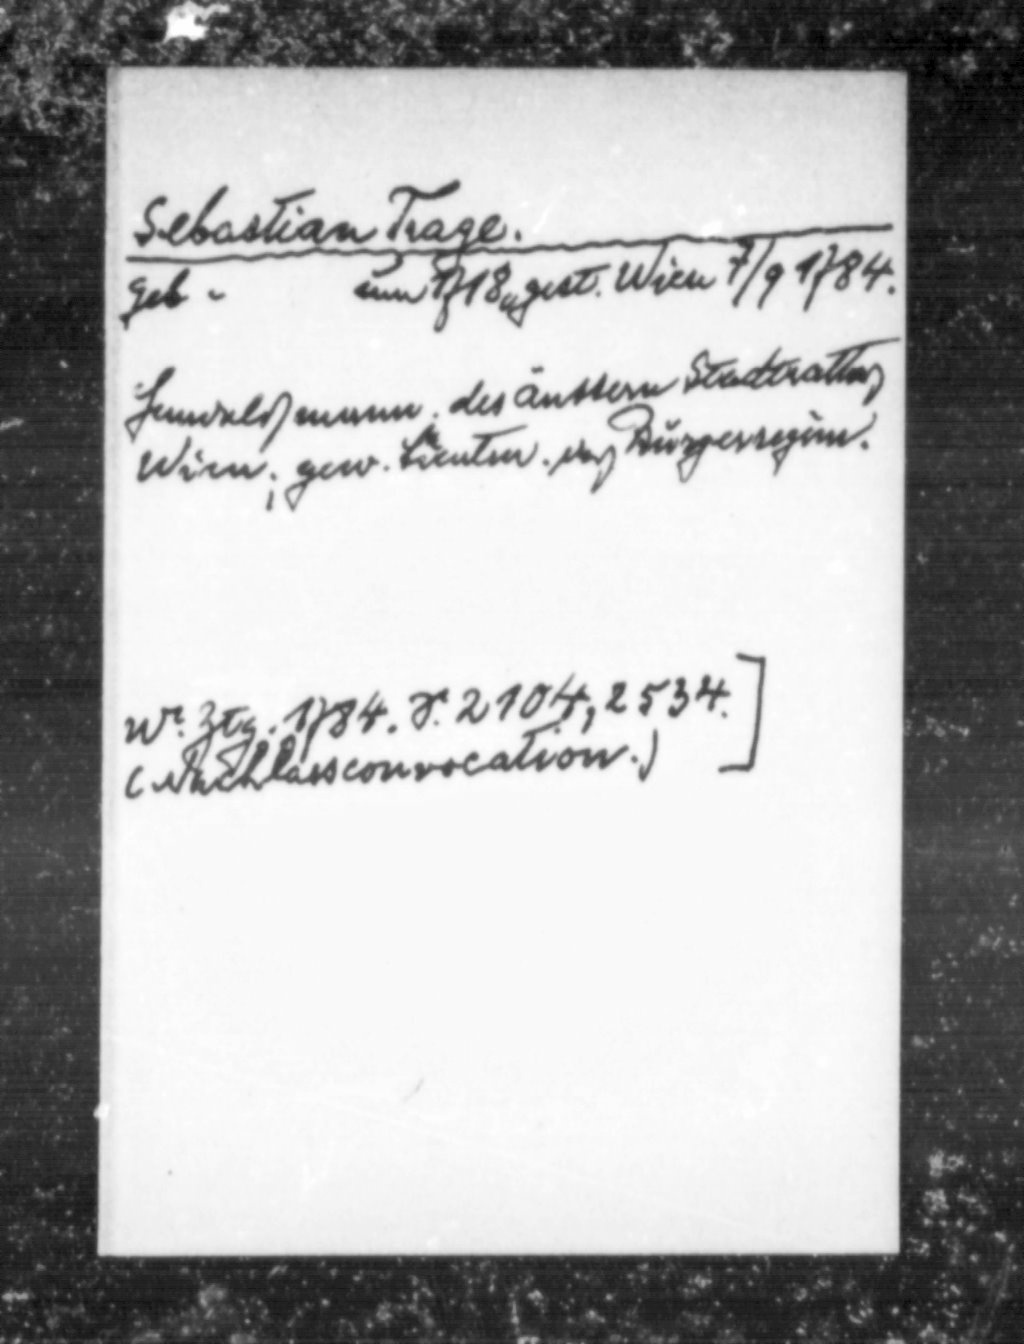 Sebastian Trage.
geb. um 1718, gest. Wien 7/9 1784.
Handelsmann. des äussern Stadtraths
Wien; gew. Lieuten. des Bürgerregim.
Wr. Ztg. 1784. S. 2104, 2534.
(Nachlassconvocation.)